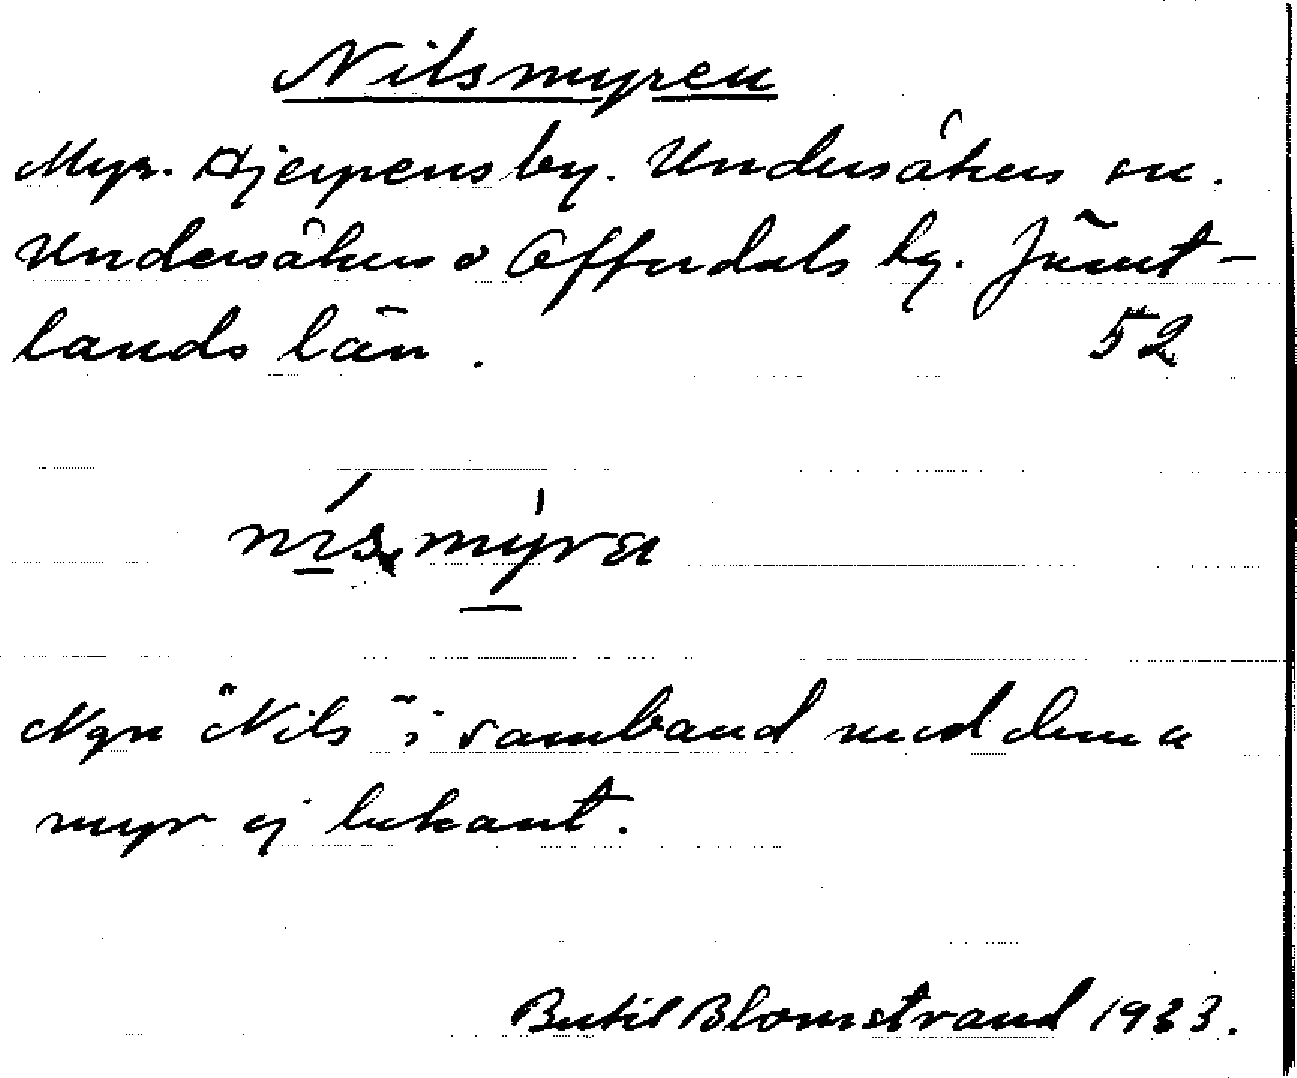 Nilsmyren
Myr. Hjerpens by. Undersåkers sn.
Undersåkers o Offerdals tg. Jämt-
lands län. 52
nís, mýra
Ngn "Nils" i samband med denna
myr ej bekant.
Bertil Blomstrand 1933.